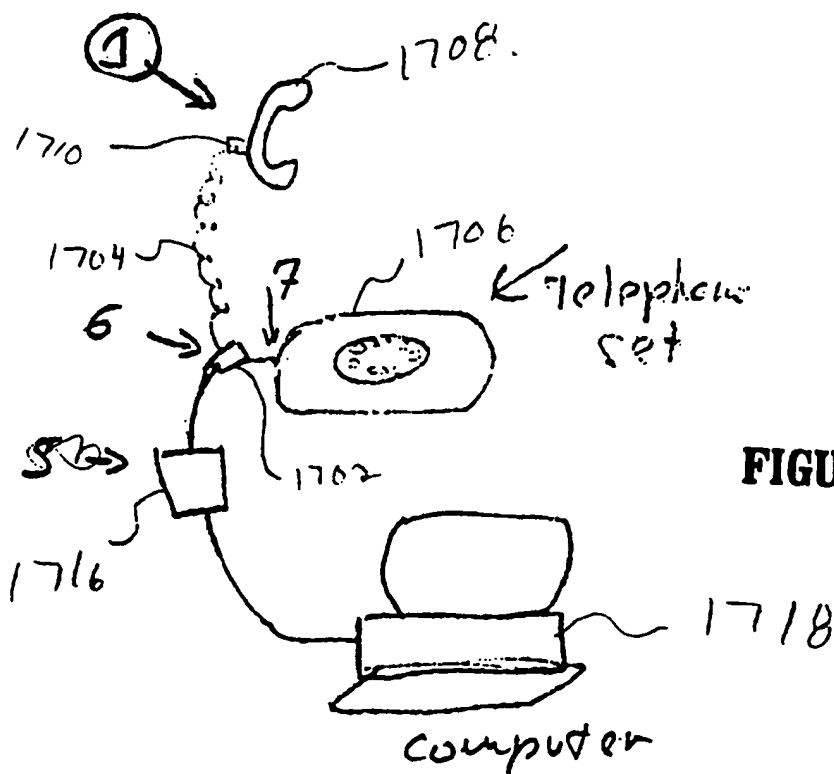 1
1708.
1710
1704
1706
7
6
set
1702
FIGU
1716
1718
computer